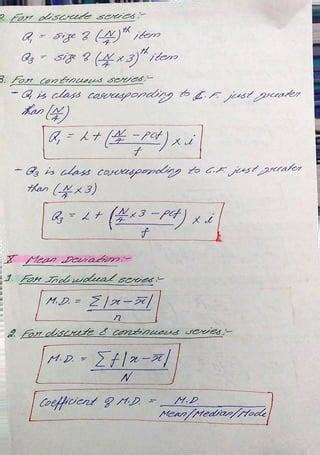 2. For discrete series:-
Q₁ = Size of (N/4)th item
Q₃ = Size of (N/4 × 3)th item
3. For continuous series:-
- Q₁ is class corresponding to C.F. just greater
than (N/4)
Q₁ = L + ((N/4 - pcf)/f) × i
- Q₃ is class corresponding to C.F. just greater
than (N/4 × 3)
Q₃ = L + ((N/4 × 3 - pcf)/f) × i
V Mean Deviation:-
1. For Individual series:-
M.D. = Σ|x - x̄|/n
2. For discrete & continuous series:-
M.D. = Σf|x - x̄|/N
Coefficient of M.D. = M.D./Mean/Median/Mode